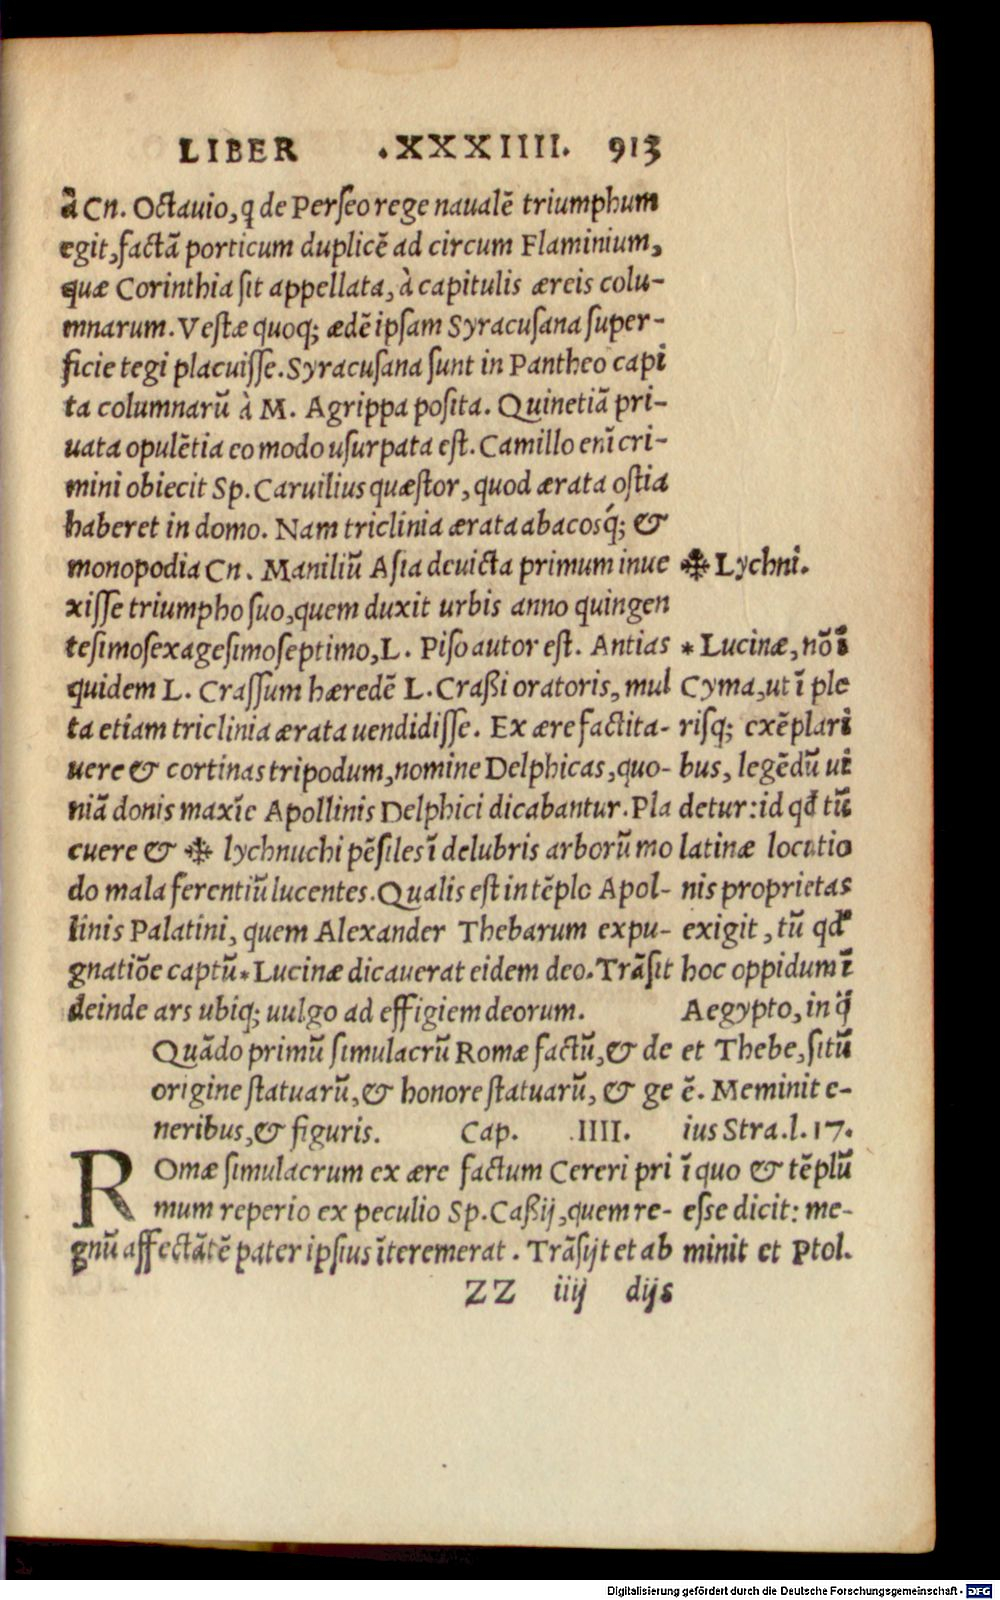 LIBER .XXXIIII. 913
à Cn. Octauio, q de Perseo rege naualē triumphum
egit, factā porticum duplicē ad circum Flaminium,
quæ Corinthia sit appellata, à capitulis æreis colu-
mnarum. Vestæ quoq; ædē ipsam Syracusana super-
ficie tegi placuisse. Syracusana sunt in Pantheo capi
ta columnarū à M. Agrippa posita. Quinetiā pri-
uata opulētia eo modo usurpata est. Camillo enī cri-
mini obiecit Sp. Caruilius quæstor, quod ærata ostia
haberet in domo. Nam triclinia ærata abacosq́; &
monopodia Cn. Maniliū Asia deuicta primum inue
xisse triumpho suo, quem duxit urbis anno quingen
tesimosexagesimoseptimo, L. Piso autor est. Antias
quidem L. Crassum hæredē L. Craßi oratoris, mul
ta etiam triclinia ærata uendidisse. Ex ære factita-
uere & cortinas tripodum, nomine Delphicas, quo-
niā donis maxīe Apollinis Delphici dicabantur. Pla
cuere & ❉ lychnuchi pēsiles ī delubris arborū mo
do mala ferentiū lucentes. Qualis est in tēplo Apol-
linis Palatini, quem Alexander Thebarum expu-
gnatiōe captū * Lucinæ dicauerat eidem deo. Trāsit
deinde ars ubiq; uulgo ad effigiem deorum.
Quādo primū simulacrū Romæ factū, & de
origine statuarū, & honore statuarū, & ge
neribus, & figuris. Cap. .IIII.
ROmæ simulacrum ex ære factum Cereri pri
mum reperio ex peculio Sp. Caßij, quem re-
gnū affectātē pater ipsius īteremerat. Trāsijt et ab
ZZ iiij dijs
❉ Lychni.
* Lucinæ, nō ī
Cyma, ut ī ple
risq; exēplari
bus, legēdū ui
detur: id qđ tū
latinæ locutio
nis proprietas
exigit, tū qđ
hoc oppidum ī
Aegypto, in q̄
et Thebe, sitū
ē. Meminit e-
ius Stra. l. 17.
ī quo & tēplū
esse dicit: me-
minit et Ptol.
Digitalisierung gefördert durch die Deutsche Forschungsgemeinschaft - DFG